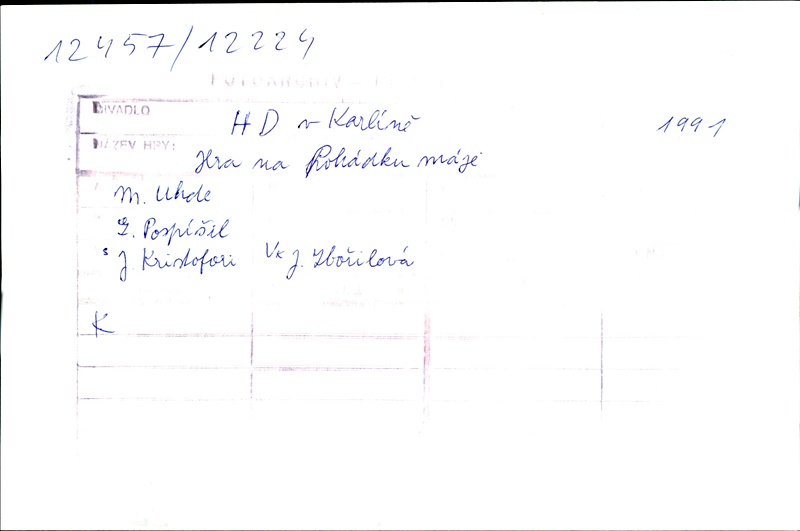 12457/12224
FOTOARCHIV
DIVADLO
HD v Karlíně
1991
NÁZEV HRY:
Hra na Pohádku máje
M. Uhde
Z. Pospíšil
s J. Kristofori Vk J. Zbořilová
K